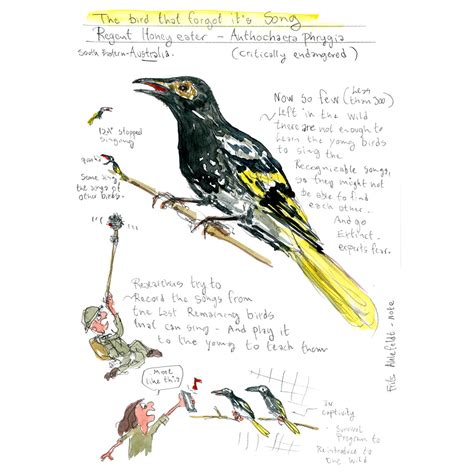 The bird that forgot it's Song
Regent Honey eater - Anthochaera phrygia
South Eastern-Australia.
(critically endangered)
Now so few (Less than 300)
Left in the Wild
there are not enough to
learn the young birds
to sing the
Recognisable songs,
so they might not
be able to find
each other...
And go
Extinct -
experts fear.
12% stopped
Singing
Some sing
the songs of
other birds.
Researchers try to
Record the Songs from
the Last Remaining birds
that can sing - And play it
to the young to teach them
like this?
In
captivity
Survival
Program to
Reintroduce to
the Wild
Frits Ahlefeldt - note